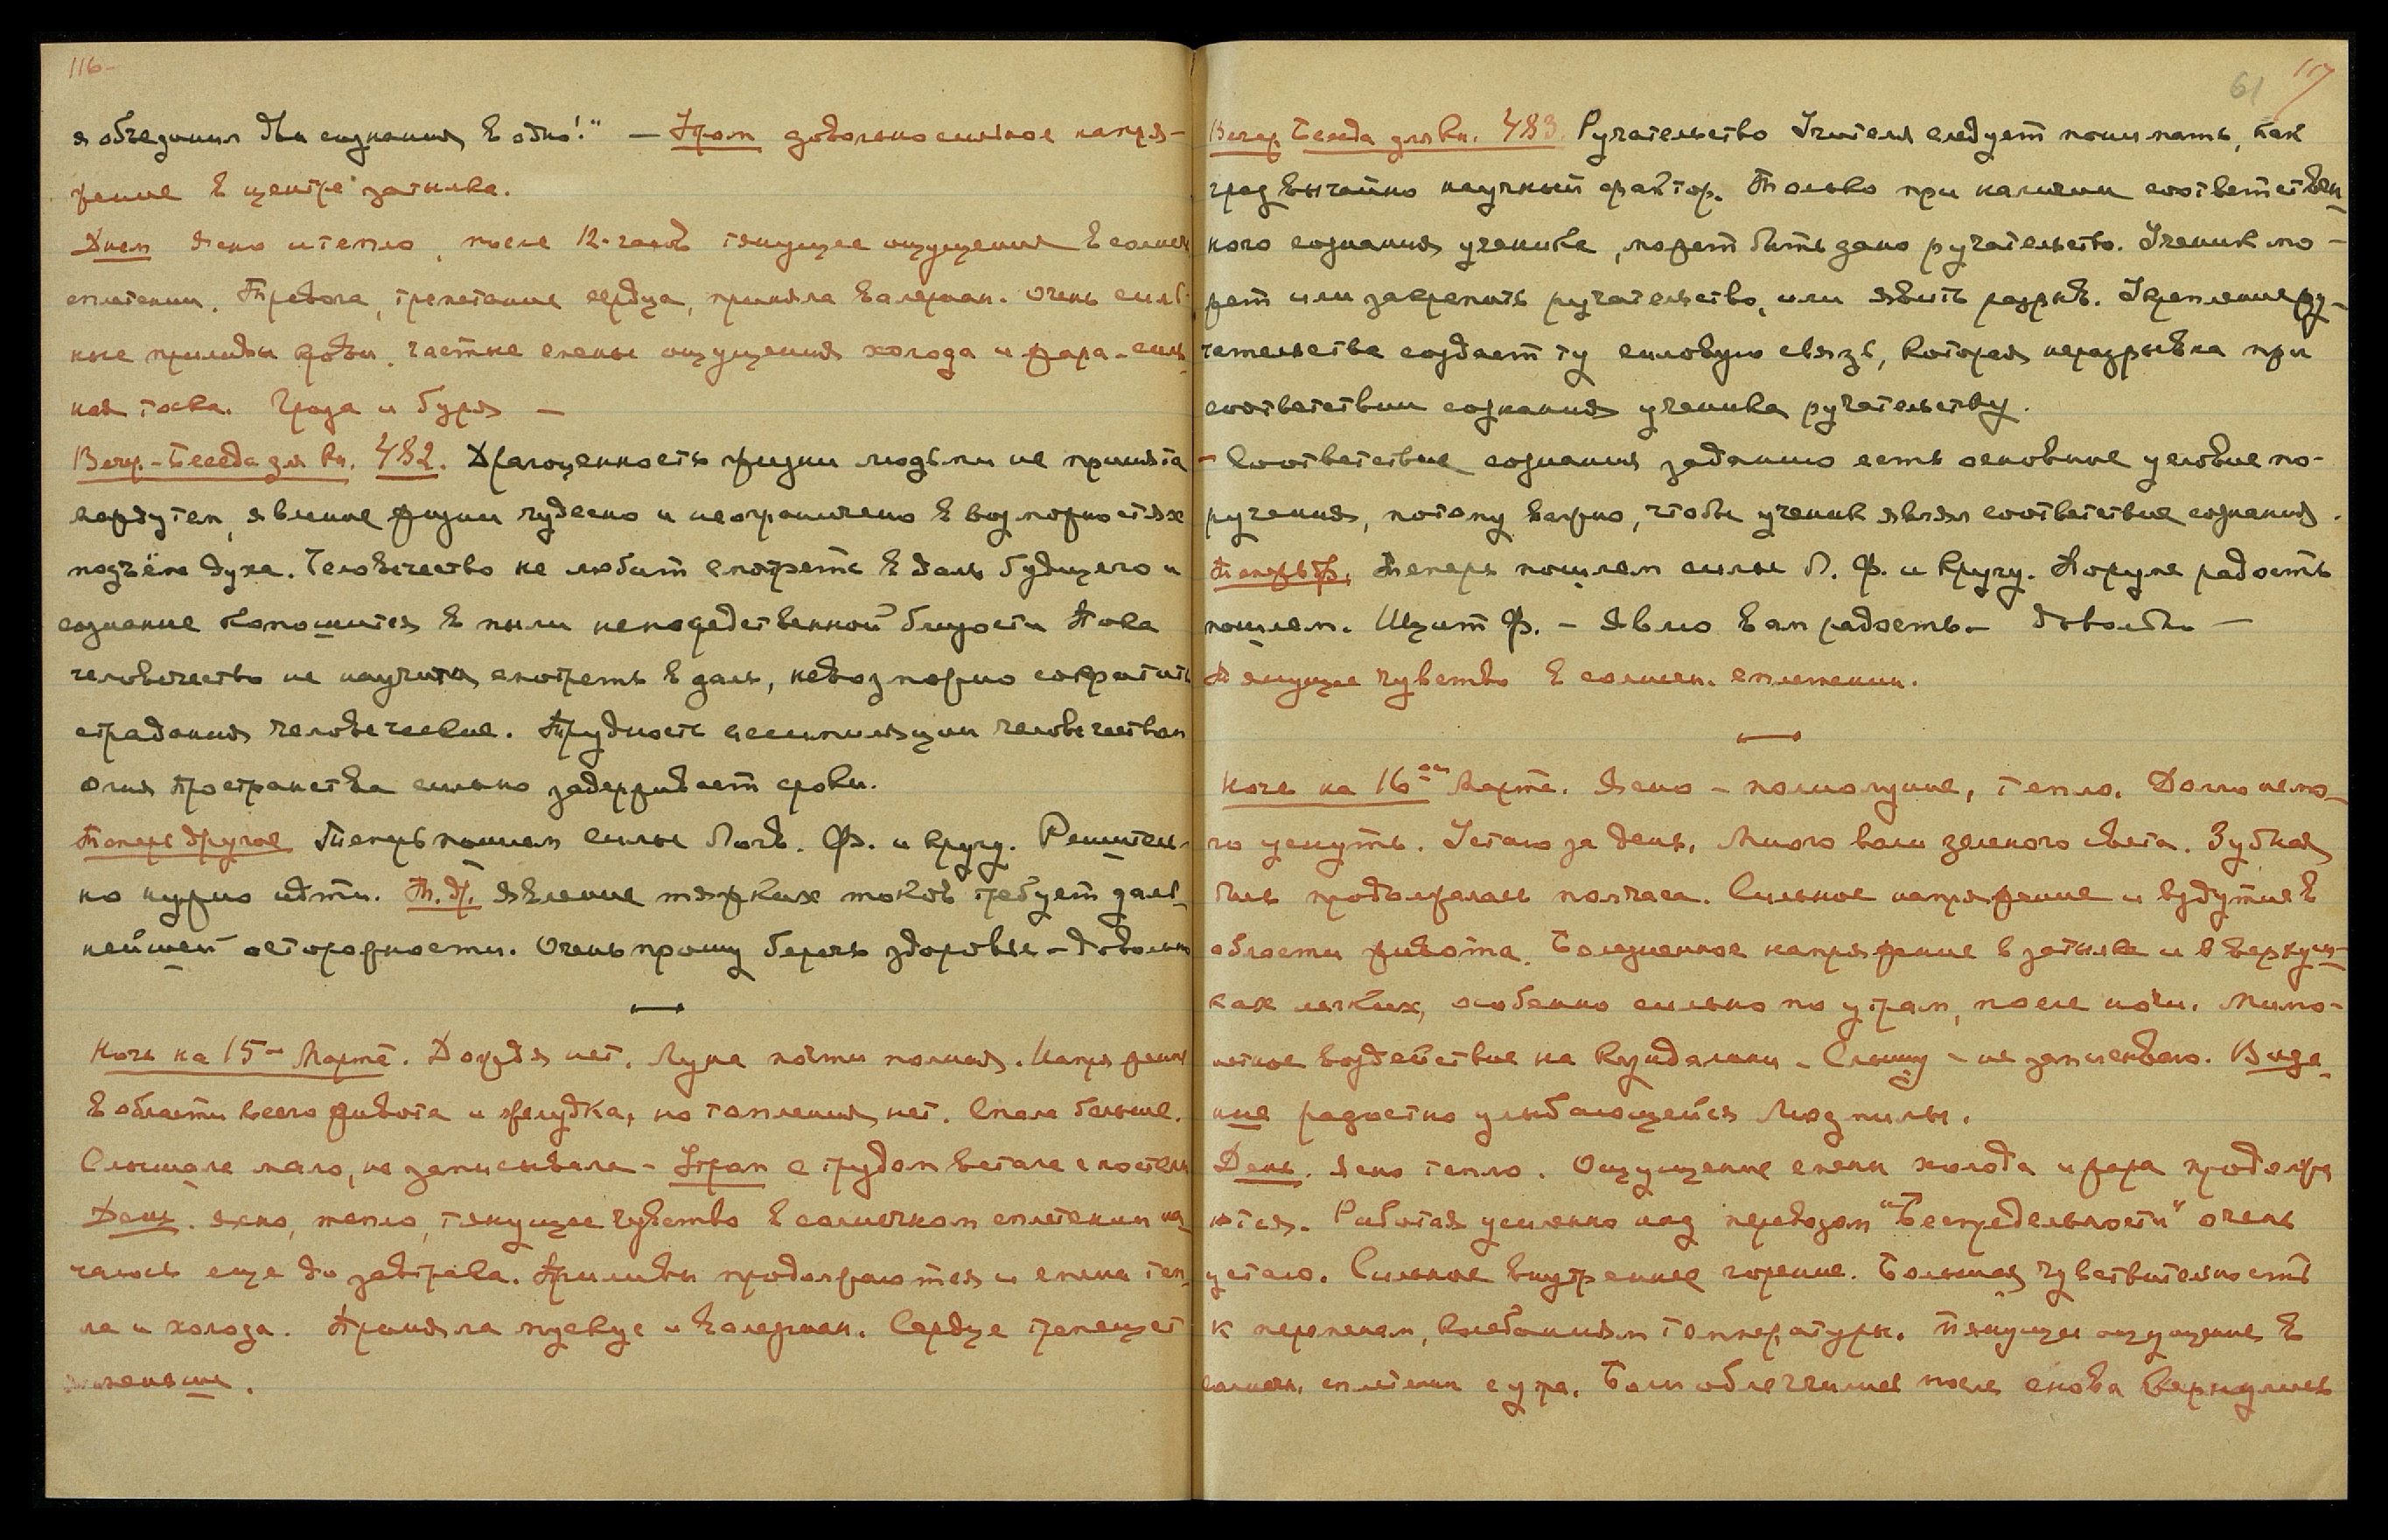 116-
я объединил два сознания в одно!" — Утром довольно сильное напря-
жение в центре затылка.
Днем Ясно и тепло, после 12-часов тянущее ощущения в солнеч
сплетении. Тревога, трепетание сердца, приняла валериан. Очень силь-
ные приливы крови, частые смены ощущения холода и жара - силь-
ная тоска. Гроза и буря —
Вечер.-Беседа для кн. 482. Драгоценность жизни людьми не принята
между тем, явление жизни чудесно и неограничено в возможностях
подъёма духа. Человечество не любит смотреть в даль будущего и
сознание копошится в пыли непосредственной близости Пока
человечество не научится смотреть в даль, невозможно сократить
страдания человеческие. Трудность ассимиляции человечеством
огня пространства сильно задерживает сроки.
Теперь другое Теперь пошлем силы Логв. Ф. и кругу. Решитель-
но нужно идти. Т. др. Явление тяжких токов требует даль-
нейшей осторожности. Очень прошу беречь здоровье - довольно
Ночь на 15-ое Марта. Дождя нет. Луна почти полная. Напряжение
в области всего живота и желудка, но томления нет. Спала больше.
Слышала мало, не записывала - Утром с трудом встала с постели
День. ясно, тепло, тянущее чувство в солнечном сплетении на-
чалось еще до завтрака. Приливы продолжаются и смена теп-
ла и холода. Приняла мускус и валериан. Сердце трепещет
меньше.
61 117
Вечер. Беседа для кн. 483. Ручательство Учителя следует понимать, как
чрезвычайно научный фактор. Только при наличии соответствен-
ного сознания ученика, может быть дано ручательство. Ученик мо-
жет или закрепить ручательство, или явить разрыв. Укрепление ру-
чательства создает ту силовую связь, которая неразрывна при
соответствии сознания ученика ручательству.
- Соответствие сознания заданию есть основное условие по-
ручения, потому важно, чтобы ученик являл соответствие сознания.
Теперь др. Теперь пошлем силы Л. Ф. и кругу. Порума радость
пошлем. Щит Ф. - Явлю вам радость - довольно —
Тянущее чувство в солнечн. сплетении.
Ночь на 16-ое Марта. Ясно - полнолуние, тепло. Долго не мо-
гу уснуть. Устаю за день, много боли зеленого света. Зубная
боль продолжалась полчаса. Сильное напряжение и вздутие в
области живота. Болезненное напряжение в затылке и в верхуш-
ках легких, особенно сильно по утрам, после ночи. Мимо-
летное воздействие на Кундалини - Слышу - не записываю. Виде-
ние радостно улыбающейся Людмилы.
День. Ясно тепло. Ощущение смены холода и жара продолжа
ются. Работая усиленно над переводом "Беспредельности" очень
устаю. Сильное внутреннее горение. Большая чувствительность
к переменам, колебаниям температуры. Тянущее ощущение в
солнечн. сплетении с утра. Боли облегчились после снова вернулись